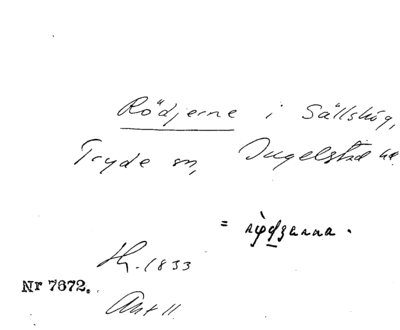 Rödjerne i Sällshög,
Tryde sn, Ingelstad hd
=
Hk. 1833
Nr 7672.
Akt 11